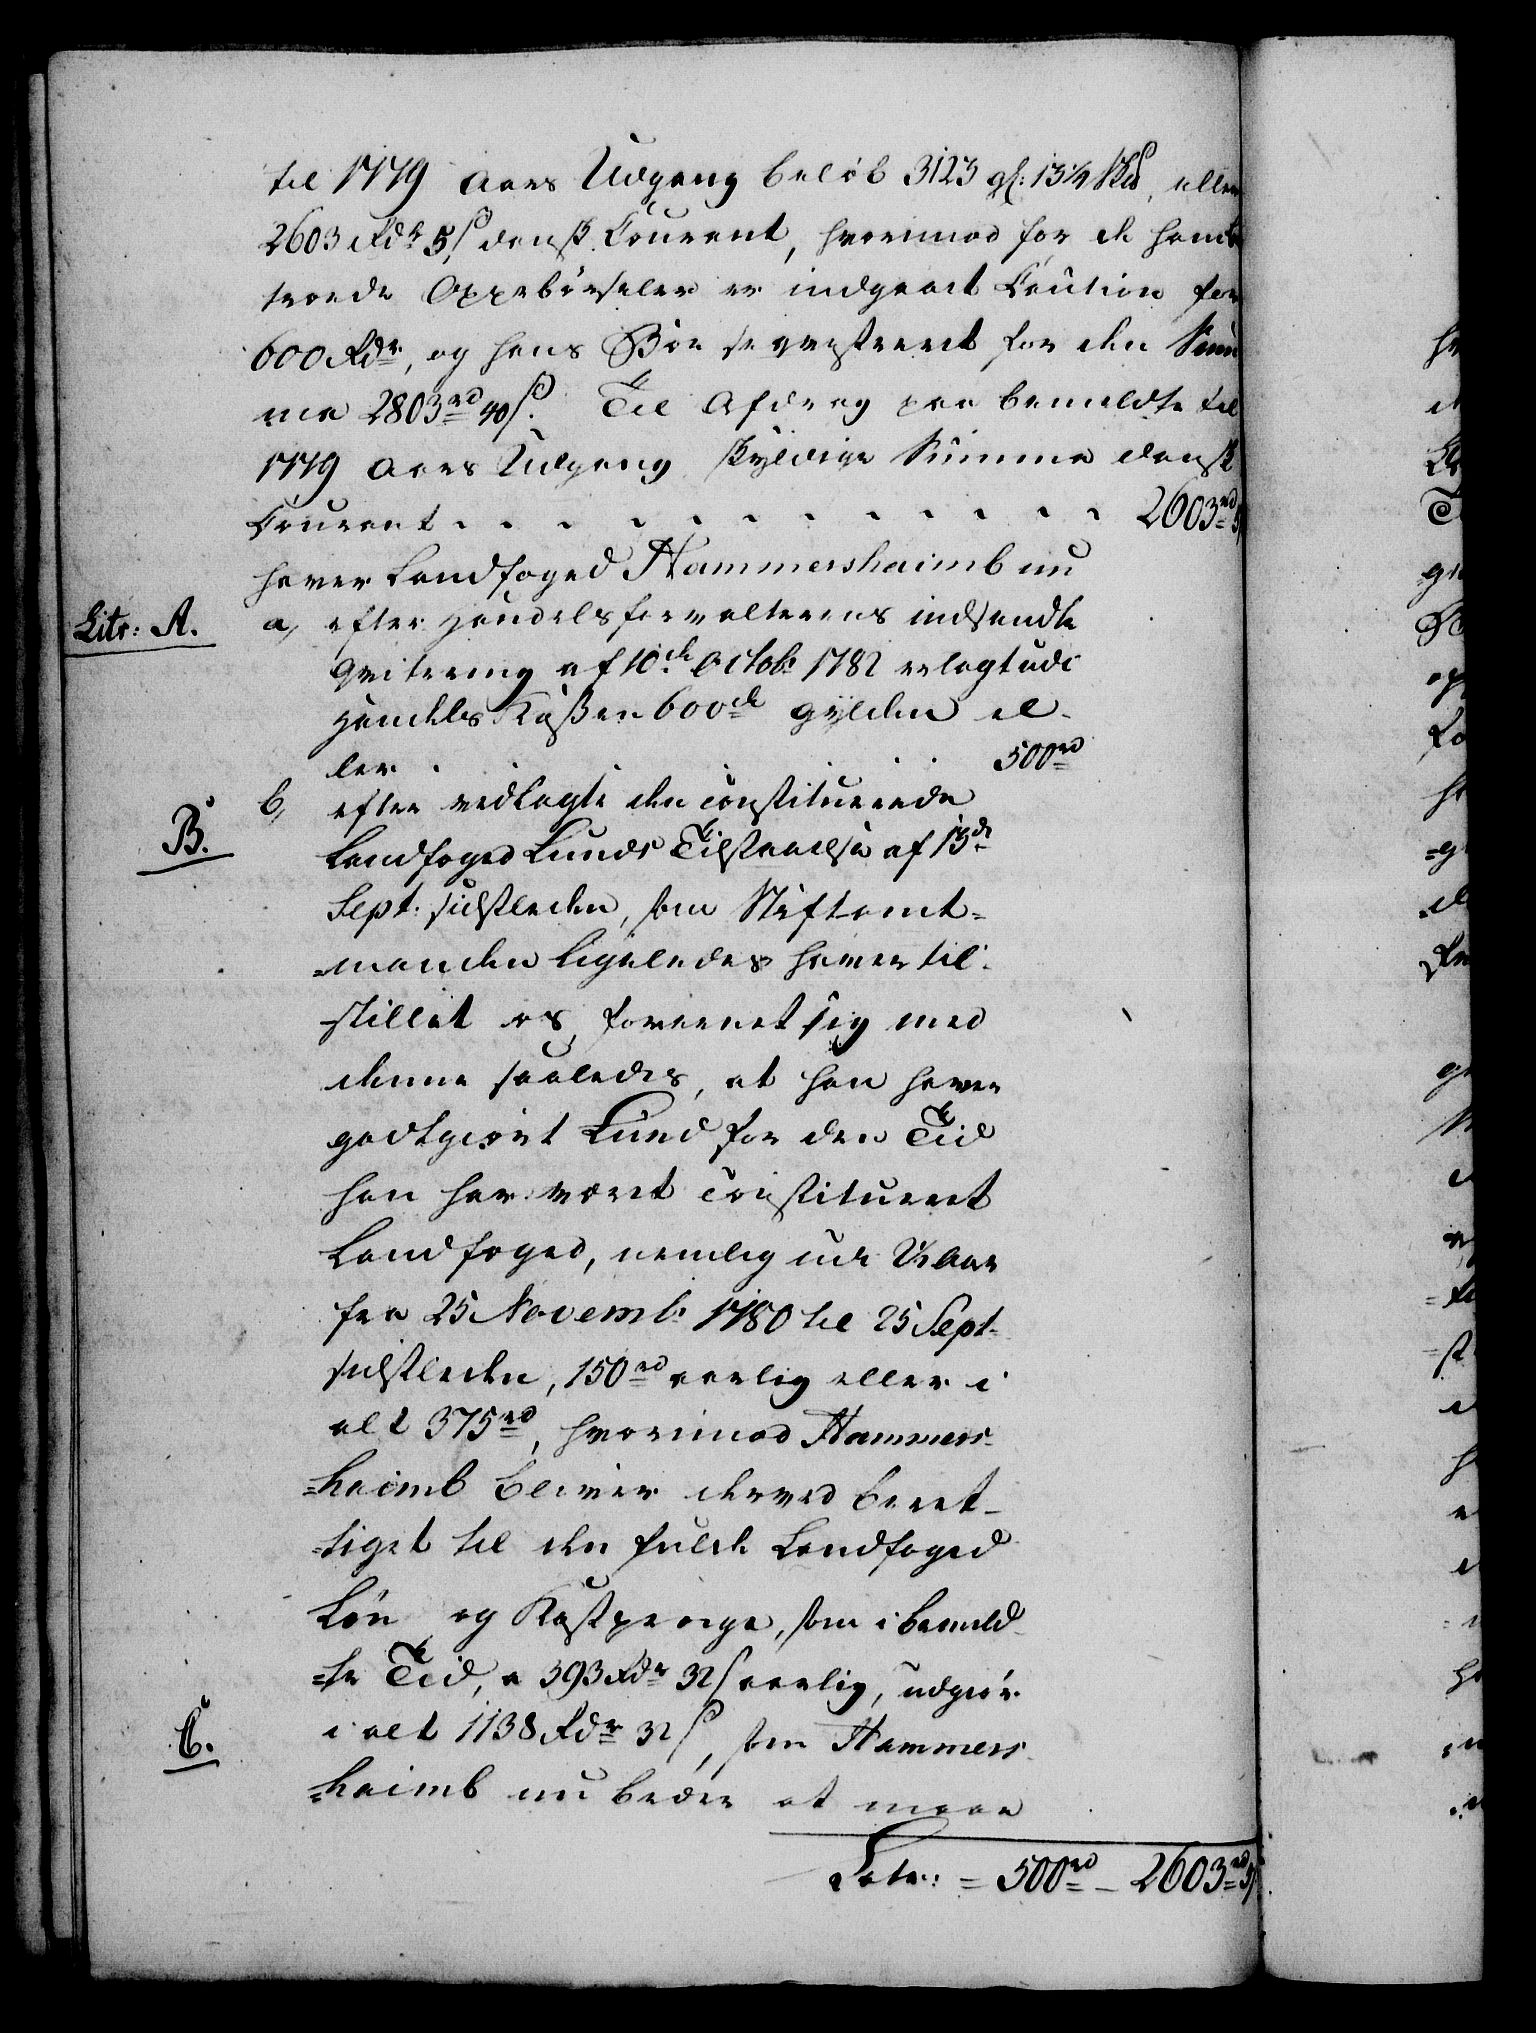 til 1779 Aars Udgang beløb 3123 gl: 13¼ Skd, eller
2603 Rdr 5 s dansk Courant, hvorimod for de ham be-
troede Oppebørseler er indgaaet Caution for
600 Rdr, og hans Boe seqvestreret for den Sum
ma 2803 rd 40 s. Til Afdrag paa bemeldte til
1779 Aars Udgang skyldige Summa dansk
Courant . . . . . . . . . . 2603 rd 5
haver Landfoged Hammershaimb nu
Litr: A. a, efter Handelsforvalterens indsendte
Qvitering af 10de Octob: 1782 erlagt udi
Handels Kassen 600de gylden el-
ler . . . . 500 rd
B. b, efter vedlagte den constituerede
Landfoged Lunds Tilstaaelse af 13de
Sept: sidstleden, som Stiftamt-
=manden ligeledes haver til-
stillet os, foreenet sig med
denne saaledes, at han haver
godtgiort Lund for den Tid
han har været constitueret
Landfoged, nemlig udi 2½ Aar
fra 25 Novemb: 1780 til 25 Sept-
sidstleden, 150 rd aarlig eller i
alt 375 rd, hvorimod Hammers-
=haimb bliver derved beret-
=tiget til den fulde Landfoged
Løn og Kostpenge, som i bemeld-
=te Tid, a 393 Rdr 32 s aarlig, udgiør
C. i alt 1138 Rdr 32 s, som Hammers-
=haimb nu beder at maae
Latr: = 500 rd - 2603 rd 5